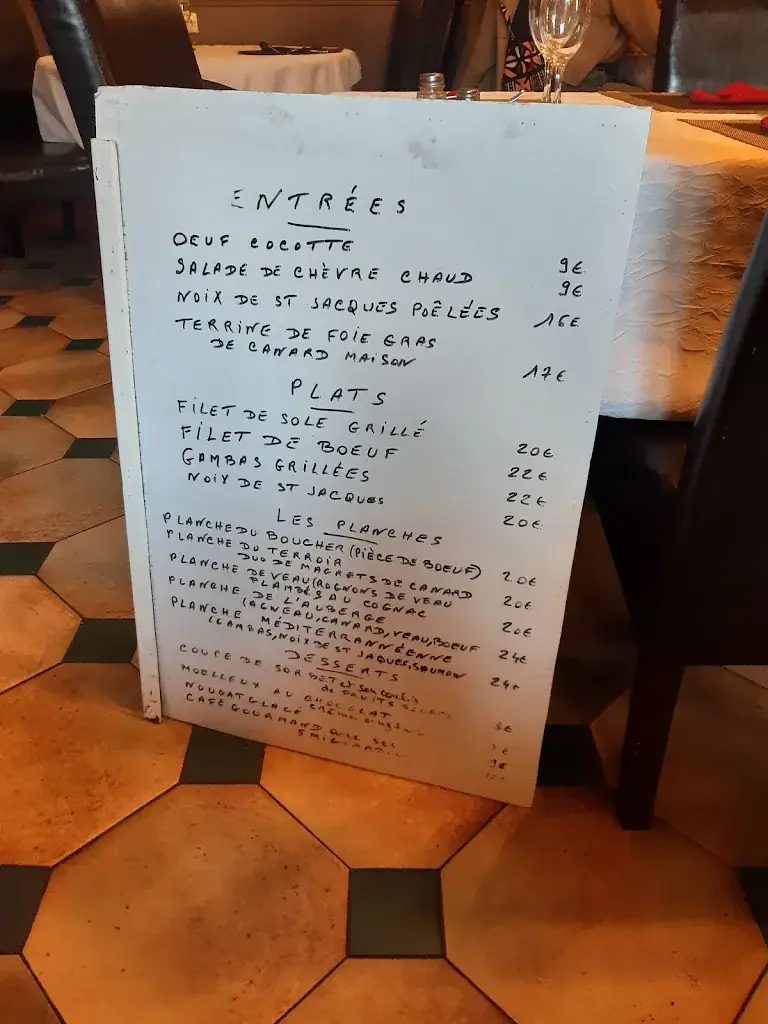 ENTRÉES
OEUF COCOTTE 9€
SALADE DE CHÈVRE CHAUD 9€
NOIX DE ST JACQUES POÊLÉES 16€
TERRINE DE FOIE GRAS
DE CANARD MAISON 17€
PLATS
FILET DE SOLE GRILLÉ 20€
FILET DE BOEUF 22€
GAMBAS GRILLÉES 22€
NOIX DE ST JACQUES 20€
LES PLANCHES
PLANCHE DU BOUCHER (PIÈCE DE BOEUF) 20€
PLANCHE DU TERROIR
DUO DE MAGRETS DE CANARD 20€
PLANCHE DE VEAU (ROGNONS DE VEAU
FLAMBÉS AU COGNAC 20€
PLANCHE DE L'AUBERGE
(AGNEAU, CANARD, VEAU, BOEUF 24€
PLANCHE MÉDITERRANNÉENNE
(GAMBAS, NOIX DE ST JAQUES, SAUMON 24€
DESSERTS
COUPE DE SORBET et son coulis
de FRUITS
MOELLEUX AU CHOCOLAT
NOUGAT GLACÉ crème 9€
CAFÉ GOURMAND